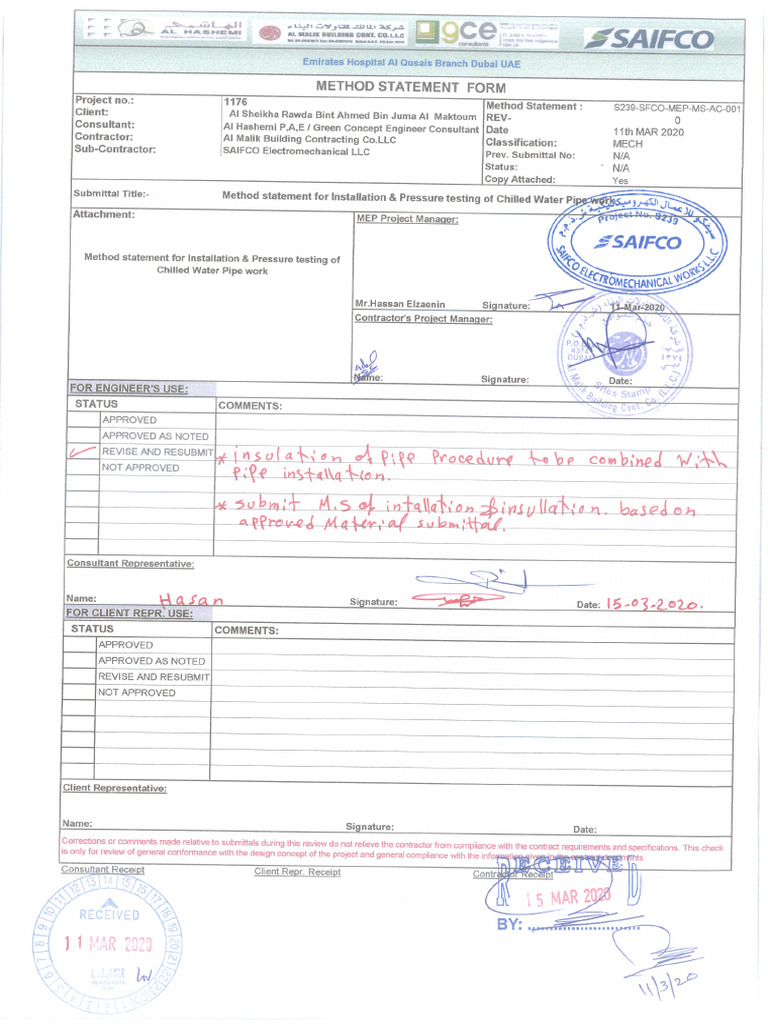 الهاشمي
AL HASHEMI
شركة المالك لمقاولات البناء
AL MALIK BUILDING CONT. CO. L.L.C
gce
consultants
SAIFCO
Emirates Hospital Al Qusais Branch Dubai UAE
METHOD STATEMENT FORM
Project no.: 1176
Client: Al Sheikha Rawda Bint Ahmed Bin Juma Al Maktoum
Consultant: Al Hashemi P.A,E / Green Concept Engineer Consultant
Contractor: Al Malik Building Contracting Co.LLC
Sub-Contractor: SAIFCO Electromechanical LLC
Method Statement : S239-SFCO-MEP-MS-AC-001
REV- 0
Date 11th MAR 2020
Classification: MECH
Prev. Submittal No: N/A
Status: N/A
Copy Attached: Yes
Submittal Title:- Method statement for Installation & Pressure testing of Chilled Water Pipe work
Attachment:
Method statement for Installation & Pressure testing of
Chilled Water Pipe work
MEP Project Manager:
Project No. S239
SAIFCO
SAIFCO ELECTROMECHANICAL WORKS L.L.C
Mr.Hassan Elzaenin Signature: 11-Mar-2020
Contractor's Project Manager:
P.O.B
4374
DUBAI
٤٣٧٤
Sites Stamp
Al Malik Building Cont. Co. (L.L.C)
Name: Signature: Date:
FOR ENGINEER'S USE:
STATUS COMMENTS:
APPROVED
APPROVED AS NOTED
REVISE AND RESUBMIT
NOT APPROVED
* insulation of pipe Procedure to be combined with
pipe installation.
* submit M.S of intallation & insullation. based on
approved Material submittal.
Consultant Representative:
Name: Hasan Signature: Date: 15-03-2020.
FOR CLIENT REPR. USE:
STATUS COMMENTS:
APPROVED
APPROVED AS NOTED
REVISE AND RESUBMIT
NOT APPROVED
Client Representative:
Name: Signature: Date:
Corrections or comments made relative to submittals during this review do not relieve the contractor from compliance with the contract requirements and specifications. This check
is only for review of general conformance with the design concept of the project and general compliance with the information given in the contract documents.
Consultant Receipt Client Repr. Receipt Contractor Receipt
RECEIVED
11 MAR 2020
RECEIVED
15 MAR 2020
BY:
11/3/20